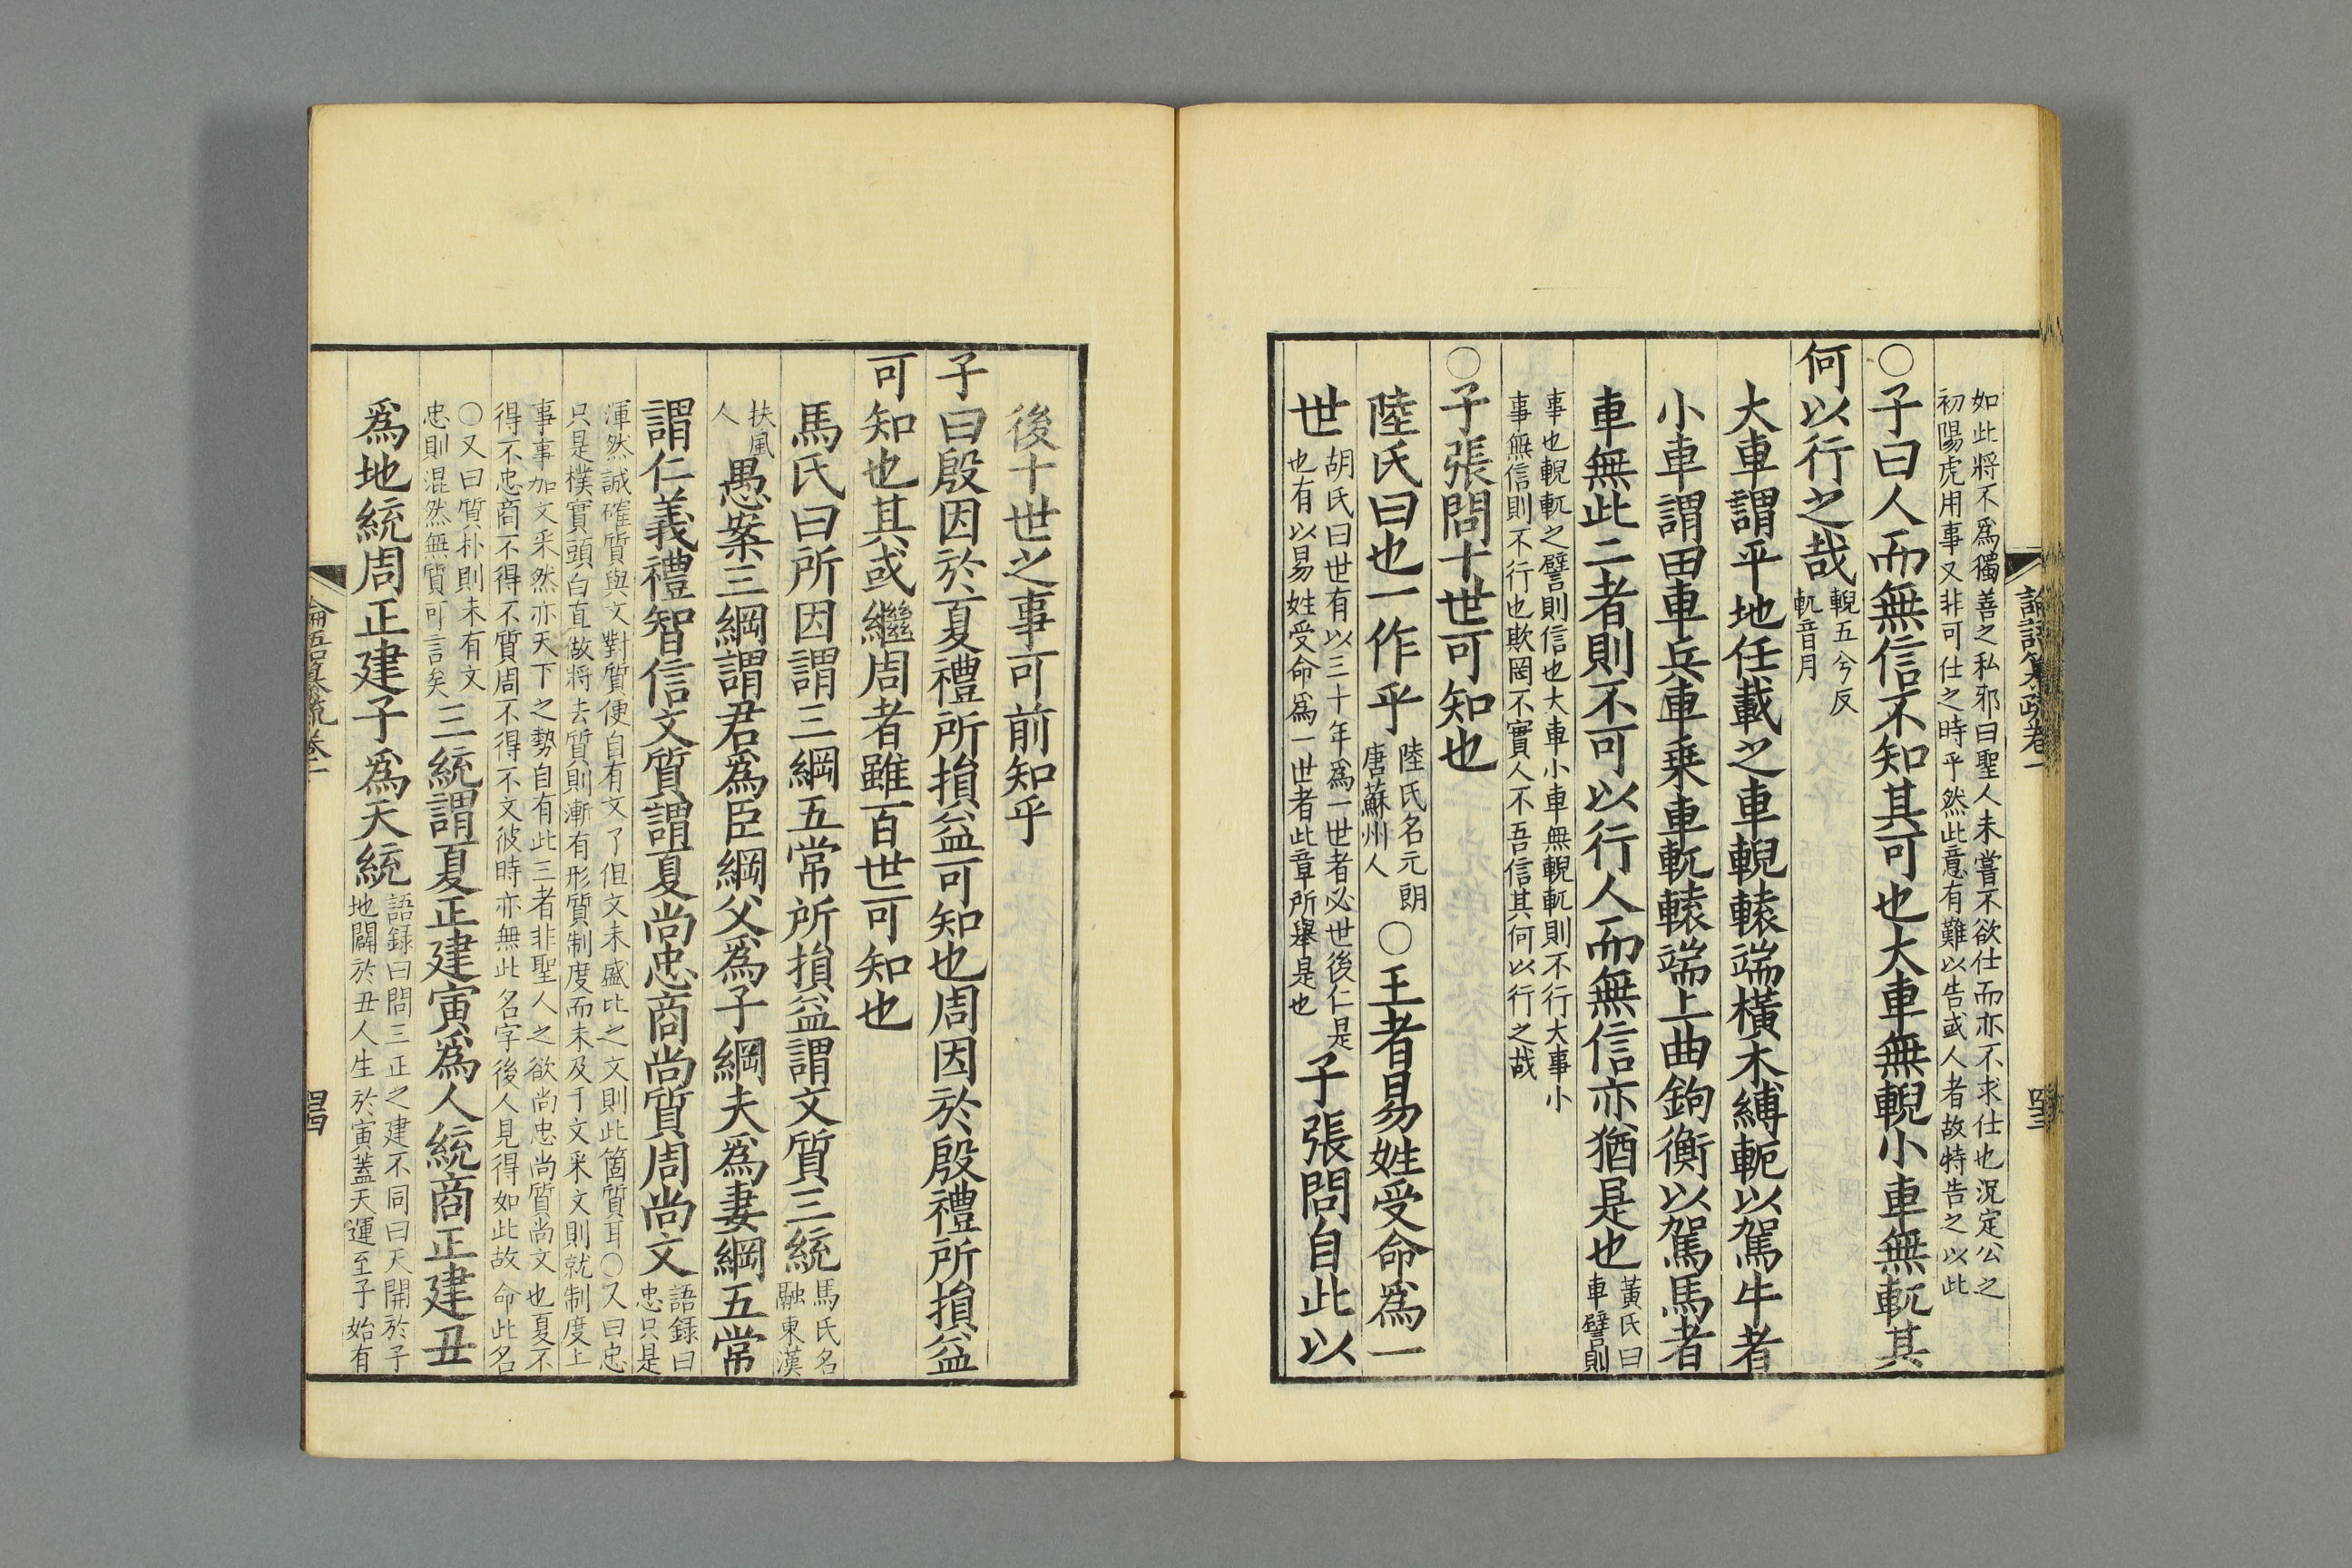 如此將不爲獨善之私邪曰聖人未嘗不欲仕而亦不求仕也況定公之
初陽虎用事又非可仕之時乎然此意有難以告或人者故特告之以此
○子曰人而無信不知其可也大車無輗小車無軏其
何以行之哉輗五兮反軏音月
大車謂平地任載之車輗轅端橫木縛軛以駕牛者
小車謂田車兵車乗車軏轅端上曲鉤衡以駕馬者
車無此二者則不可以行人而無信亦猶是也黃氏曰車譬則
事也輗軏之譬則信也大車小車無輗軏則不行大事小
事無信則不行也欺罔不實人不吾信其何以行之哉
○子張問十世可知也
陸氏曰也一作乎陸氏名元朗唐蘇州人○王者易姓受命爲一
世胡氏曰世有以三十年爲一世者必世後仁是也有以易姓受命爲一世者此章所舉是也子張問自此以
論語纂疏卷一
四三
後十世之事可前知乎
子曰殷因於夏禮所損益可知也周因於殷禮所損益
可知也其或繼周者雖百世可知也
馬氏曰所因謂三綱五常所損益謂文質三統馬氏名融東漢
扶風人愚案三綱謂君爲臣綱父爲子綱夫爲妻綱五常
謂仁義禮智信文質謂夏尚忠商尚質周尚文語録曰忠只是
渾然誠確質與文對質便自有文了但文未盛比之文則此箇質耳○又曰忠
只是樸實頭白直做將去質則漸有形質制度而未及于文采文則就制度上
事事加文采然亦天下之勢自有此三者非聖人之欲尚忠尚質尚文也夏不
得不忠商不得不質周不得不文彼時亦無此名字後人見得如此故命此名
○又曰質朴則未有文忠則混然無質可言矣三統謂夏正建寅爲人統商正建丑
爲地統周正建子爲天統語録曰問三正之建不同曰天開於子地闢於丑人生於寅蓋天運至子始有
論語纂疏卷一
四四